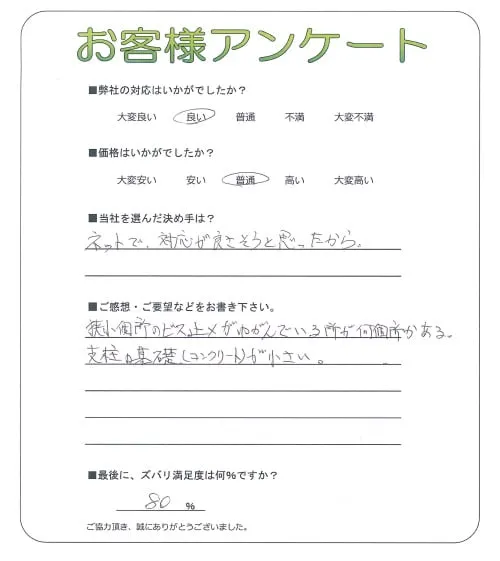 お客様アンケート
■弊社の対応はいかがでしたか？
大変良い 良い 普通 不満 大変不満
■価格はいかがでしたか？
大変安い 安い 普通 高い 大変高い
■当社を選んだ決め手は？
ネットで、対応が良さそうと思ったから。
■ご感想・ご要望などをお書き下さい。
狭小個所のビス止メがゆがんでいる所が何個所かある。
支柱の基礎（コンクリート）が小さい。
■最後に、ズバリ満足度は何％ですか？
80 ％
ご協力頂き、誠にありがとうございました。